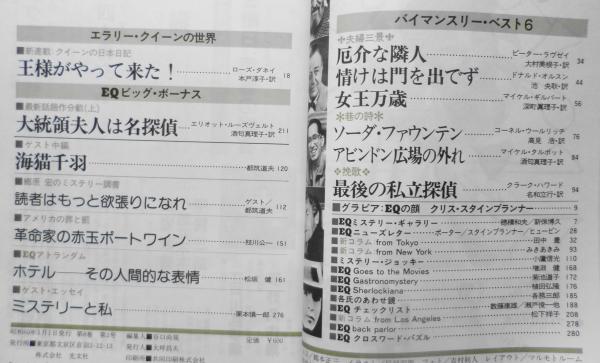 エラリー・クイーンの世界
■新連載：クイーンの日本日記
王様がやって来た！ ローズ・ダネイ 木戸淳子・訳 18
EQビッグ・ボーナス
■最新話題作分載(上)
大統領夫人は名探偵 エリオット・ルーズヴェルト 酒句真理子・訳 211
■ゲスト中編
海猫千羽 都筑道夫 120
■郷原 宏のミステリー調書
読者はもっと欲張りになれ ゲスト／都筑道夫 112
■アメリカの罪と罰
革命家の赤玉ポートワイン 枝川公一 151
■EQアトランダム
ホテル――その人間的な表情 松坂 健 161
■ゲスト・エッセイ
ミステリーと私 栗本慎一郎 276
定価 ¥600
株式会社 光文社
バイマンスリー・ベスト6
✤夫婦三景✤
厄介な隣人 ピーター・ラヴゼイ 大村美根子・訳 34
情けは門を出でず ドナルド・オルスン 池 央耿・訳 44
女王万歳 マイケル・ギルバート 深町眞理子・訳 56
✤巷の詩✤
ソーダ・ファウンテン コーネル・ウールリッチ 高見 浩・訳 76
アビンドン広場の外れ マイケル・タルボット 酒句真理子・訳 84
✤挽歌✤
最後の私立探偵 クラーク・ハワード 名和立行・訳 94
■グラビア：EQの顔 クリス・スタインブランナー 9
■EQミステリー・ギャラリー 穂積和夫／新保博久 7
■EQニューズレター ポーター／スタインブランナー／ヒュービン 28
■新コラム from Tokyo 田中 豊 32
■新コラム from New York みきあきみ 93
■ミステリー・ジョッキー 小鷹信光 110
■EQ Goes to the Movies 増淵 健 168
■EQ Gastronomystery 菊池道子 172
■EQ Sherlockiana 植田弘隆 176
■各氏のあわせ鏡 各務三郎 185
■EQ チェックリスト 数藤康雄／瀬戸俊一他 188
■新コラム from Los Angeles 松下祥子 207
■EQ back parlor 278
■EQ クロスワード・パズル 280